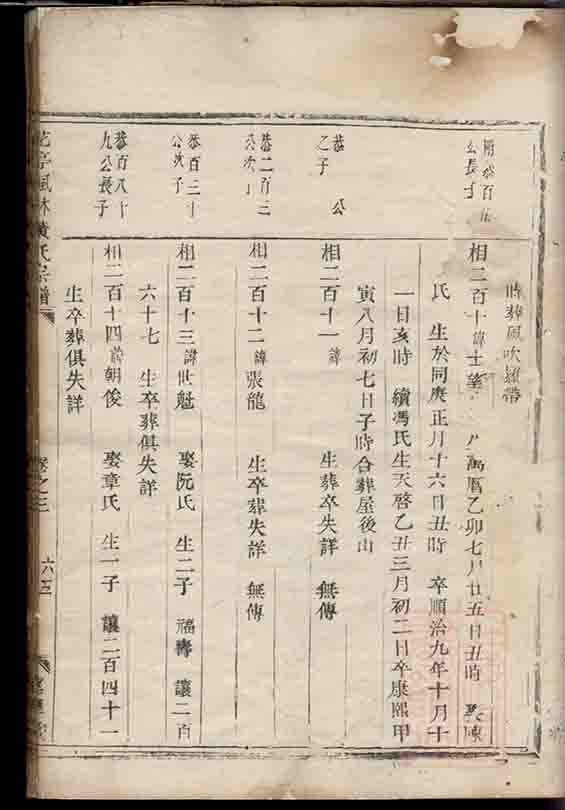 時葬風吹羅帶
公長子
相二百十諱士望 萬曆乙卯七月廿五日丑時 娶陳
氏 生於同庚正月十六日丑時 卒順治九年十月十
一日亥時 續馮氏生天啓乙丑三月初二日卒康熙甲
寅八月初七日子時合葬屋後山
恭 公
乙子
相二百十一諱 生葬卒失詳 無傳
恭二百三
公次子
相二百十二諱張龍 生卒葬失詳 無傳
恭百三十
公次子
相二百十三諱世魁 娶阮氏 生二子 福壽 讓二百
六十七 生卒葬俱失詳
恭百八十
九公長子
相二百十四諱朝俊 娶章氏 生一子 讓二百四十一
生卒葬俱失詳
花亭風林黄氏宗譜 卷之三 六十三